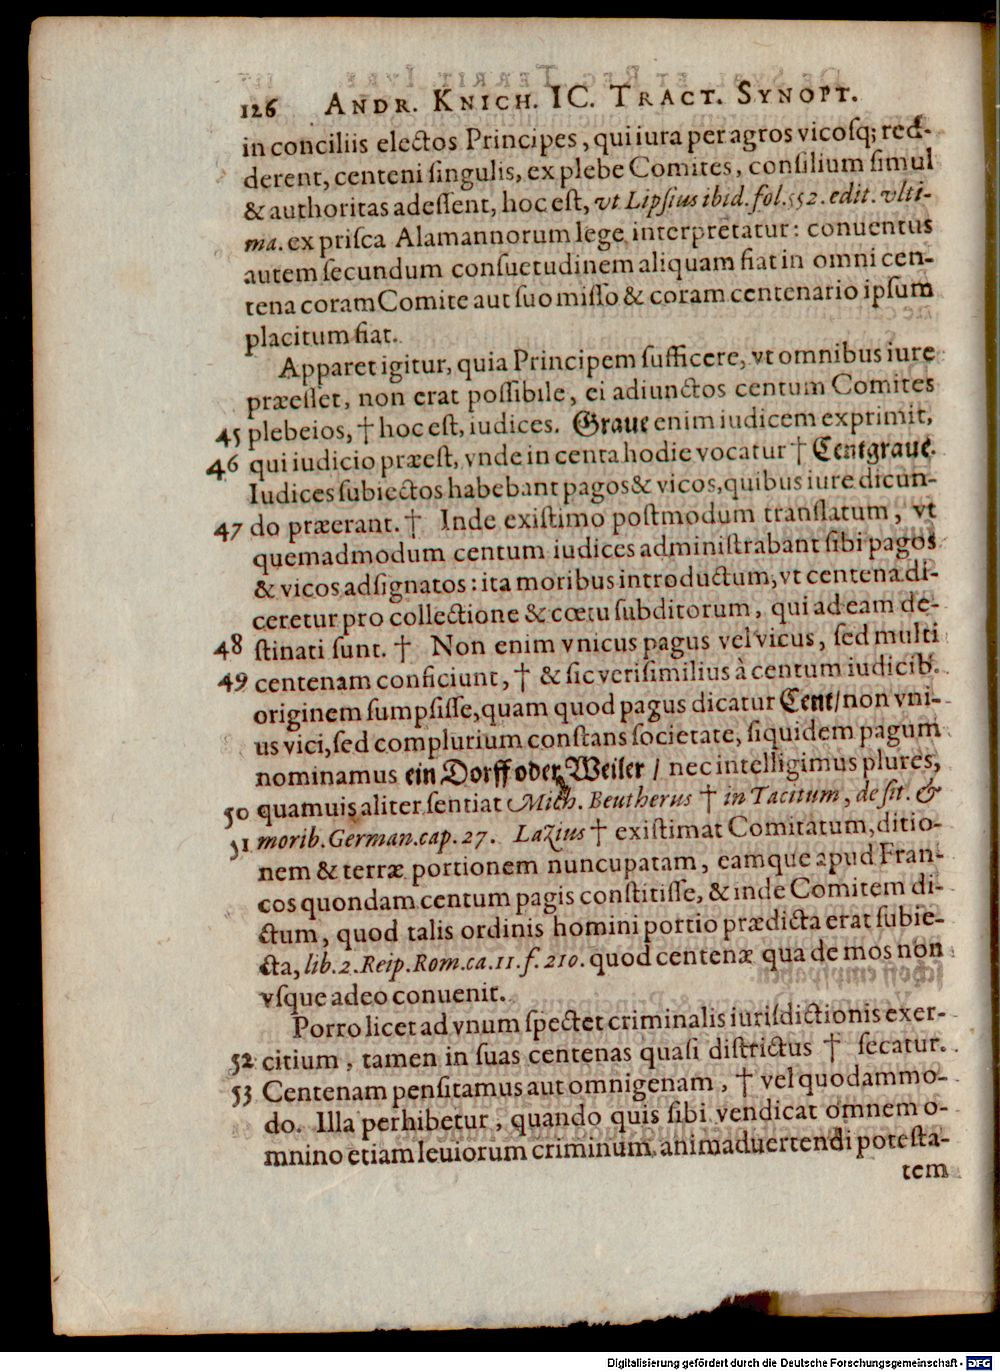 126 ANDR. KNICH. IC. TRACT. SYNOPT.
in conciliis electos Principes, qui iura per agros vicosq; red-
derent, centeni singulis, ex plebe Comites, consilium simul
& authoritas adessent, hoc est, vt Lipsius ibid. fol. 552. edit. vlti-
ma. ex prisca Alamannorum lege interpretatur: conuentus
autem secundum consuetudinem aliquam fiat in omni cen-
tena coram Comite aut suo misso & coram centenario ipsum
placitum fiat.
Apparet igitur, quia Principem sufficere, vt omnibus iure
præesset, non erat possibile, ei adiunctos centum Comites
45 plebeios, † hoc est, iudices. Graue enim iudicem exprimit,
46 qui iudicio præest, vnde in centa hodie vocatur † Centgraue.
Iudices subiectos habebant pagos & vicos, quibus iure dicun-
47 do præerant. † Inde existimo postmodum translatum, vt
quemadmodum centum iudices administrabant sibi pagos
& vicos adsignatos: ita moribus introductum, vt centena di-
ceretur pro collectione & cœtu subditorum, qui ad eam de-
48 stinati sunt. † Non enim vnicus pagus vel vicus, sed multi
49 centenam conficiunt, † & sic verisimilius à centum iudicib.
originem sumpsisse, quam quod pagus dicatur Cent/ non vni-
us vici, sed complurium constans societate, siquidem pagum
nominamus ein Dorff oder Weiler / nec intelligimus plures,
50 quamuis aliter sentiat Mich. Beutherus † in Tacitum, de sit. &
51 morib. German. cap. 27. Lazius † existimat Comitatum, ditio-
nem & terræ portionem nuncupatam, eamque apud Fran-
cos quondam centum pagis constitisse, & inde Comitem di-
ctum, quod talis ordinis homini portio prædicta erat subie-
cta, lib. 2. Reip. Rom. ca. 11. f. 210. quod centenæ qua de mos non
vsque adeo conuenit.
Porro licet ad vnum spectet criminalis iurisdictionis exer-
52 citium, tamen in suas centenas quasi districtus † secatur.
53 Centenam pensitamus aut omnigenam, † vel quodammo-
do. Illa perhibetur, quando quis sibi vendicat omnem o-
mnino etiam leuiorum criminum animaduertendi potesta-
tem
Digitalisierung gefördert durch die Deutsche Forschungsgemeinschaft - DFG